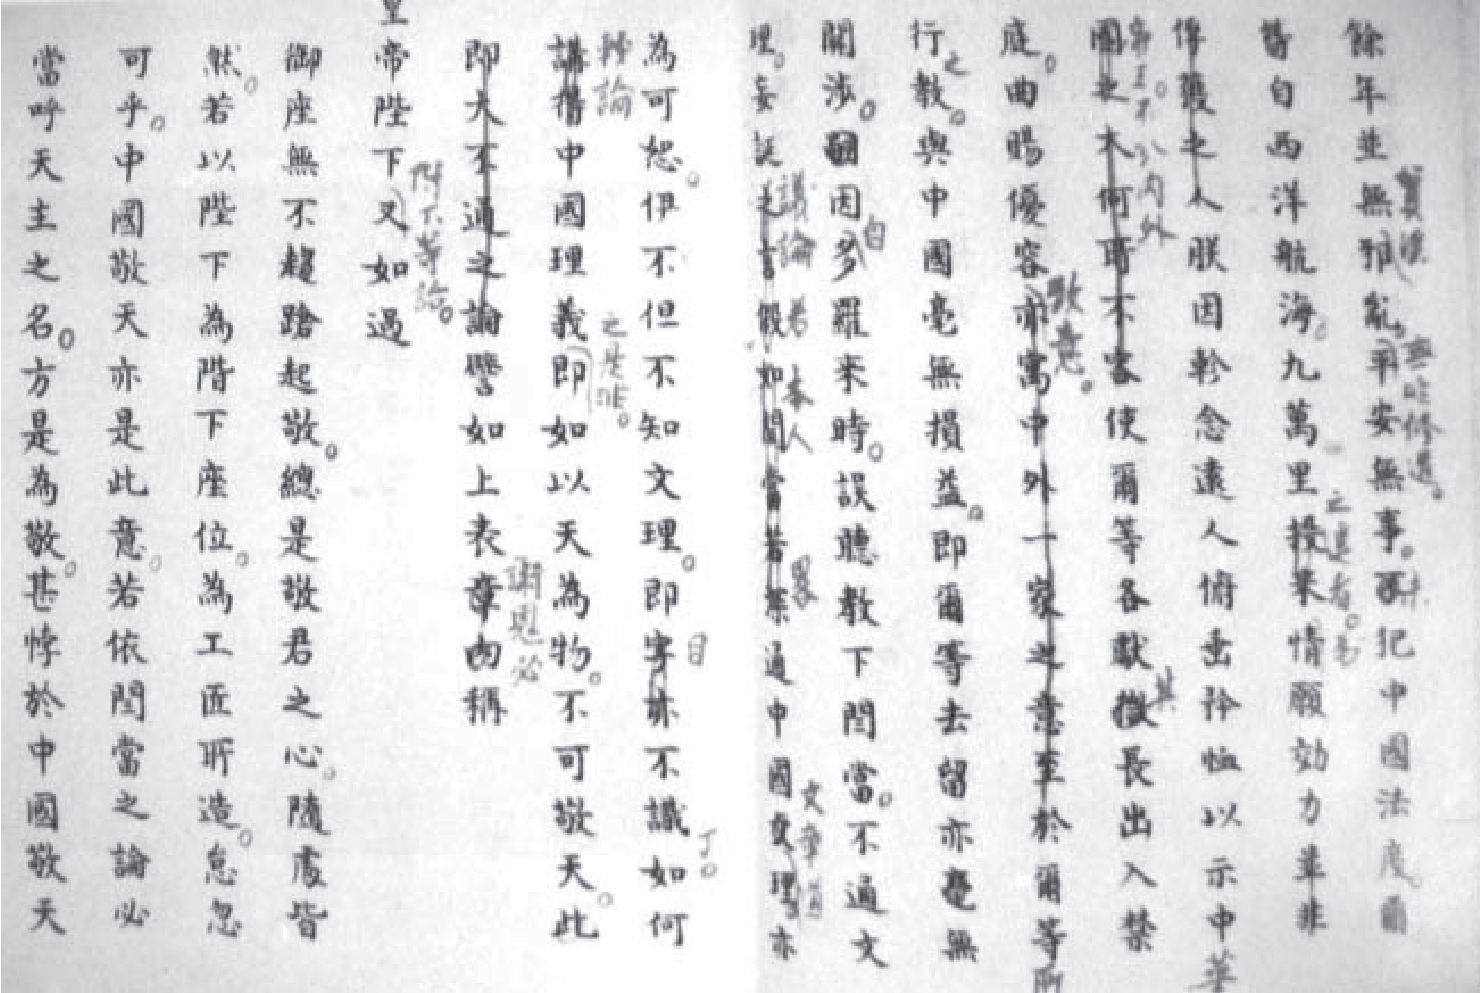 餘年並無邪亂平安無事不犯中國法度爾
貪淫
無非修道
等自西洋航海九萬里投來情願効力並非
之遠者
俘獲之人朕因軫念遠人俯垂矜恤以示中華
帝王不分內外
國之大何所不容使爾等各獻徵長出入禁
其
庭曲賜優容亦寓中外一家之意至於爾等所
敬意
行教與中國毫無損益即爾等去留亦毫無
之
關涉因多羅來時誤聽教下閻當不通文
自
理妄誕之言假如閻當若畧通中國文理亦
議論 若本人
文章道
為可恕伊不但不知文理即字亦不識如何
目
丁
講得中國理義即如以天為物不可敬天此
輕論
之是非
即大不通之論譬如上表章內稱
謝恩必
皇帝陛下又如過
階下等論
御座無不趨蹌起敬總是敬君之心隨處皆
然若以陛下為階下座位為工匠所造怠忽
可乎中國敬天亦是此意若依閻當之論必
當呼天主之名方是為敬甚悖於中國敬天